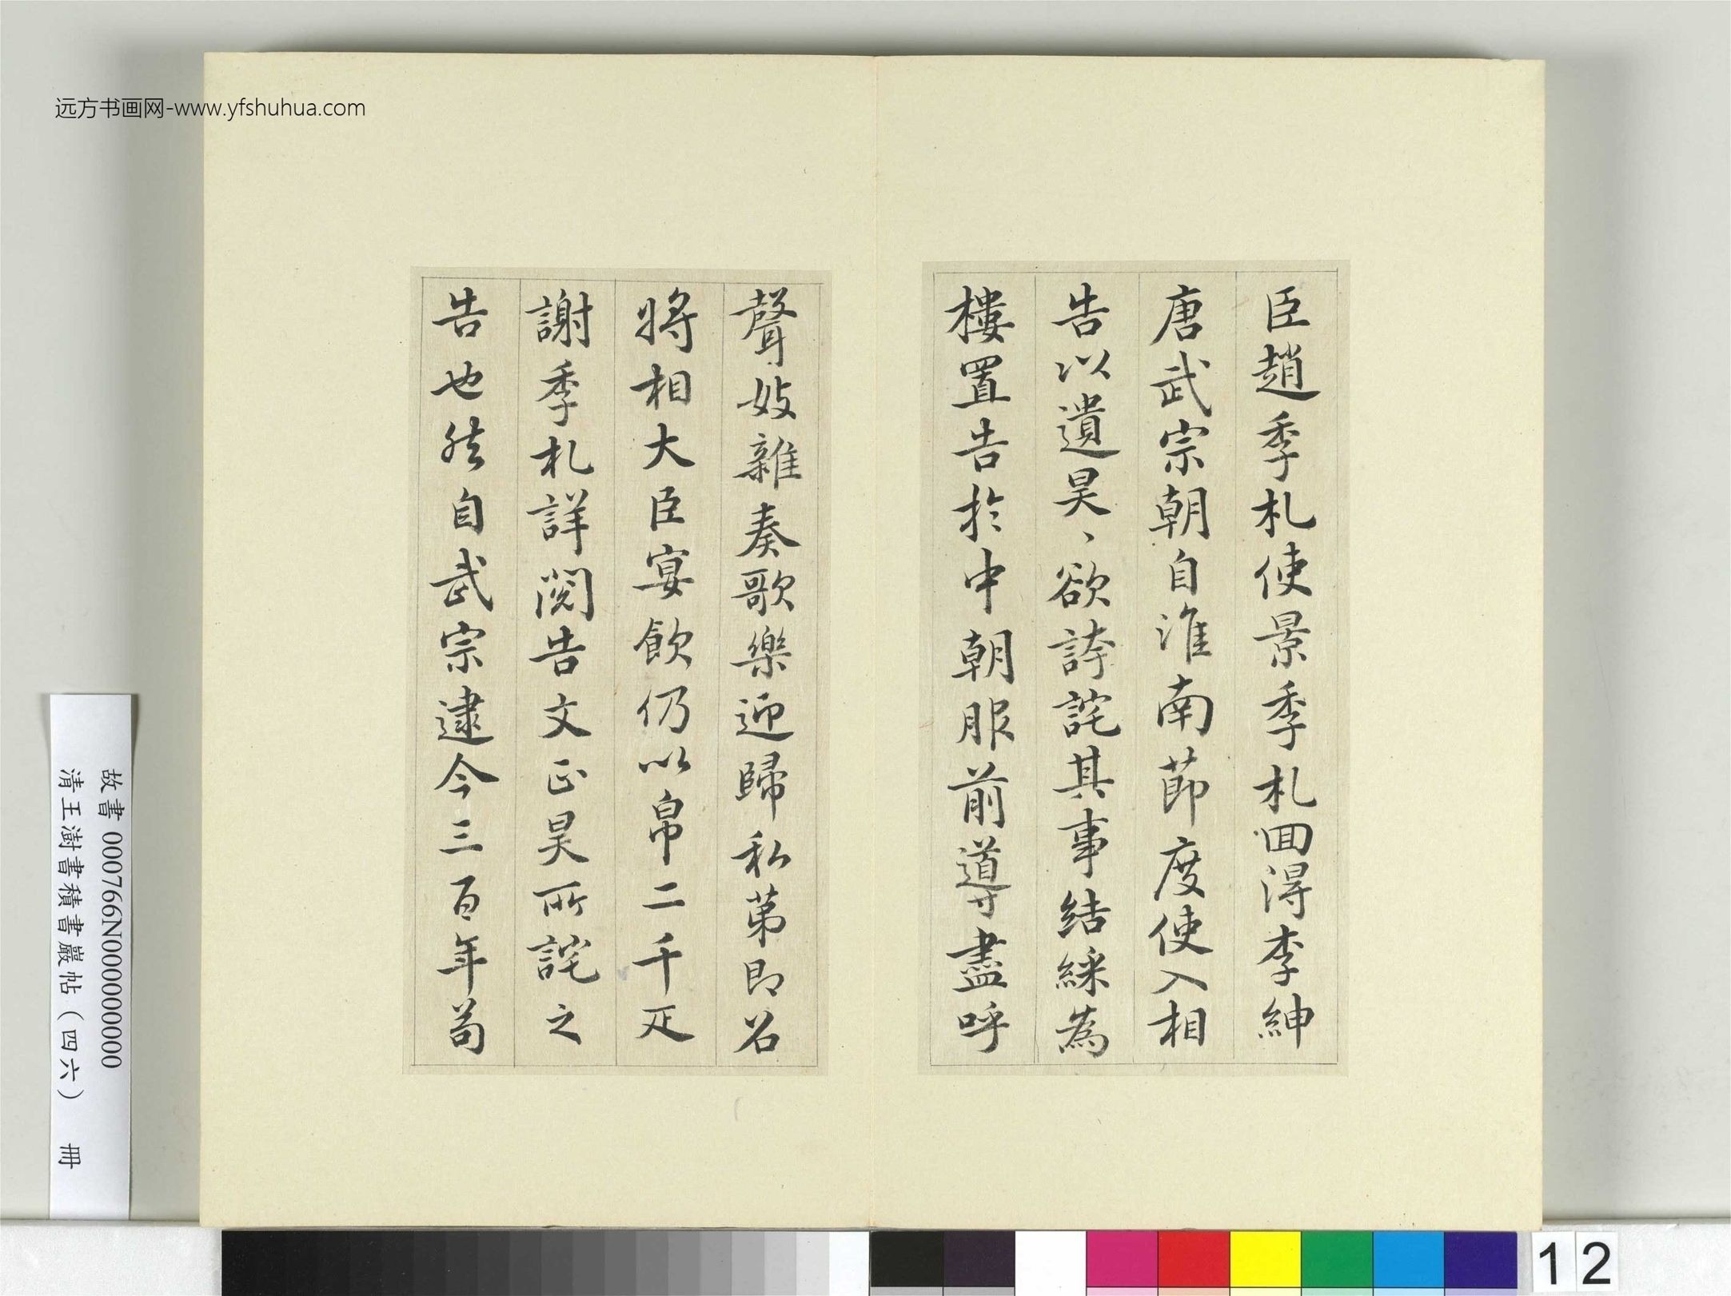 远方书画网-www.yfshuhua.com
臣趙季札使景季札囬得李紳
唐武宗朝自淮南節度使入相
告以遺昊、欲誇詫其事結綵為
樓置告扵中朝服前導盡呼
聲妓雜奏歌樂迎歸私苐即召
將相大臣宴飲仍以帛二千疋
謝季札詳閱告文正昊所詫之
告也然自武宗逮今三百年苟
故書 000766N000000000
清王澍書積書巖帖（四六） 冊
12